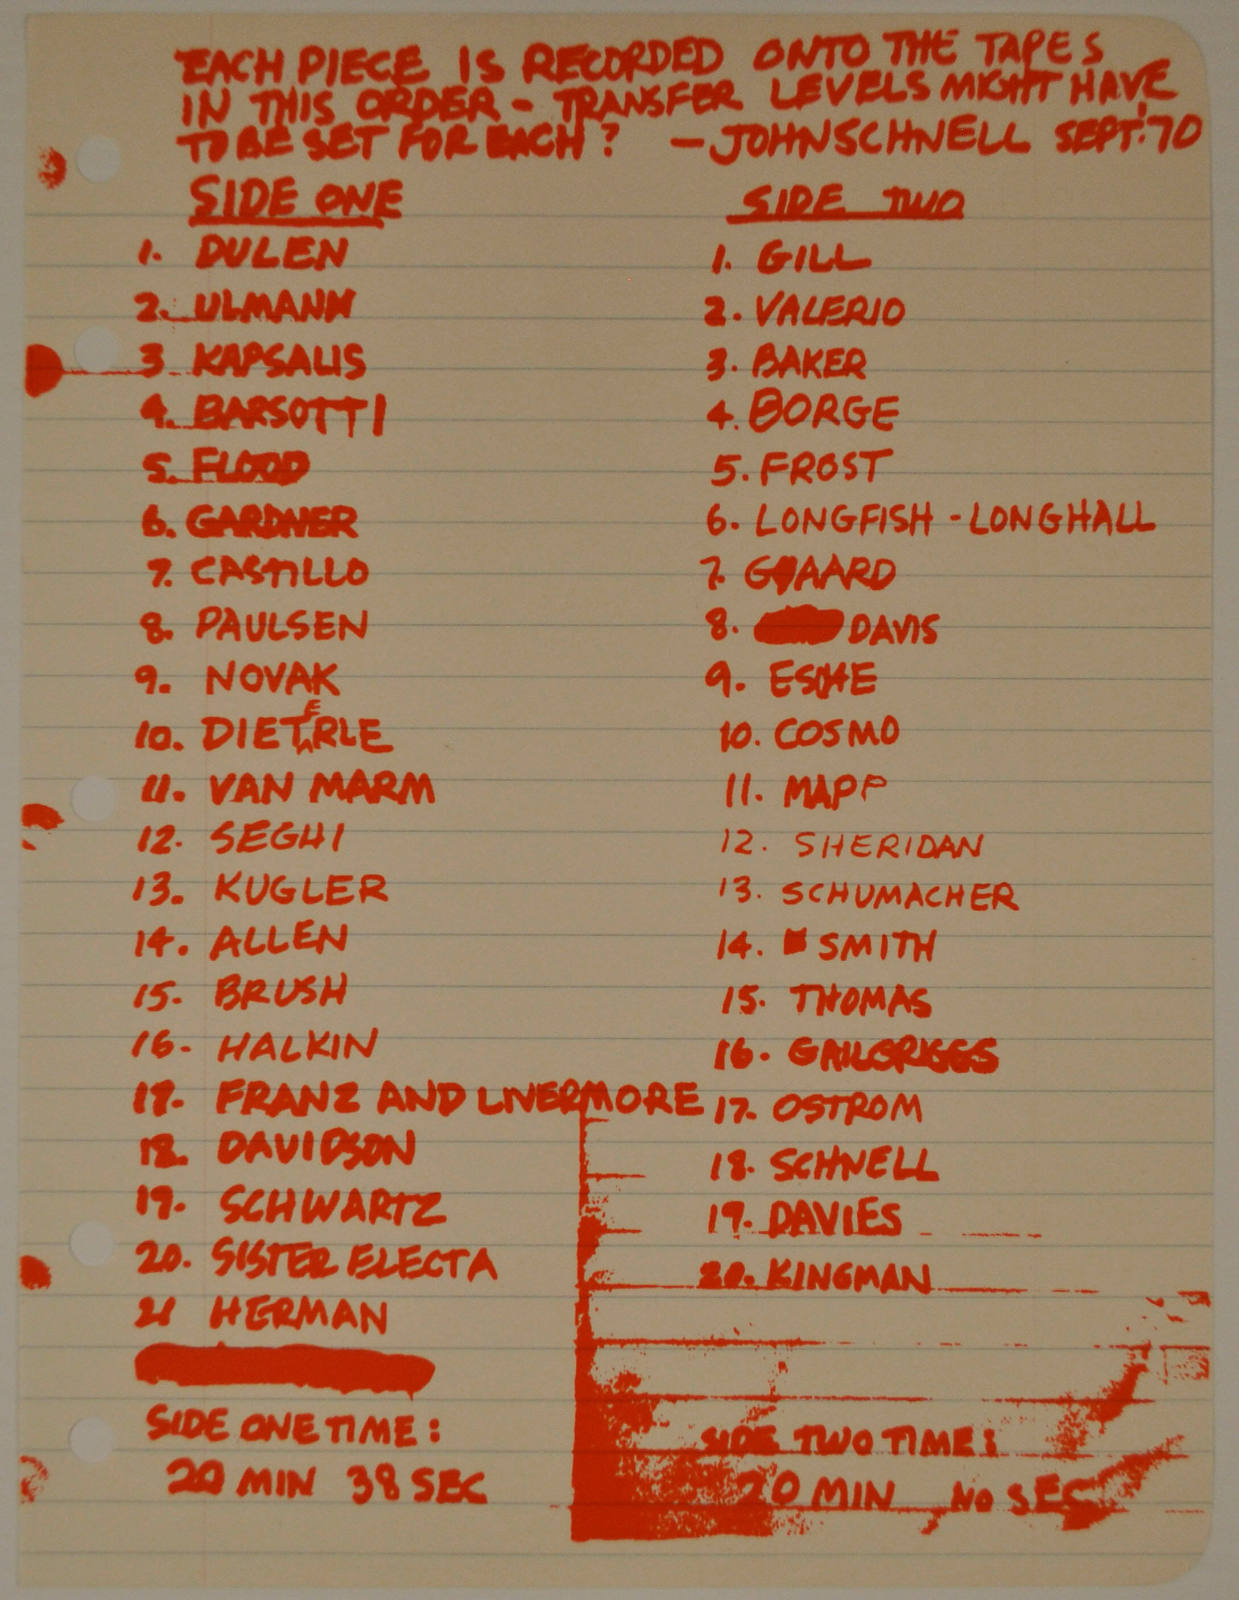 EACH PIECE IS RECORDED ONTO THE TAPES
IN THIS ORDER - TRANSFER LEVELS MIGHT HAVE
TO BE SET FOR EACH? - JOHN SCHNELL SEPT. '70
SIDE ONE
1. DULEN
2. ULMANN
3 KAPSALIS
4. BARSOTTI
5. FLOOD
6. GARDNER
7. CASTILLO
8. PAULSEN
9. NOVAK
10. DIETERLE
11. VAN MARM
12. SEGHI
13. KUGLER
14. ALLEN
15. BRUSH
16. HALKIN
17. FRANZ AND LIVERMORE
18. DAVIDSON
19. SCHWARTZ
20. SISTER ELECTA
21 HERMAN
SIDE ONE TIME:
20 MIN 38 SEC
SIDE TWO
1. GILL
2. VALERIO
3. BAKER
4. BORGE
5. FROST
6. LONGFISH - LONGHALL
7. GAARD
8. DAVIS
9. ESCHE
10. COSMO
11. MAPP
12. SHERIDAN
13. SCHUMACHER
14. SMITH
15. THOMAS
16. GAIL GRIGGS
17. OSTROM
18. SCHNELL
19. DAVIES
20. KINGMAN
SIDE TWO TIME:
20 MIN NO SEC